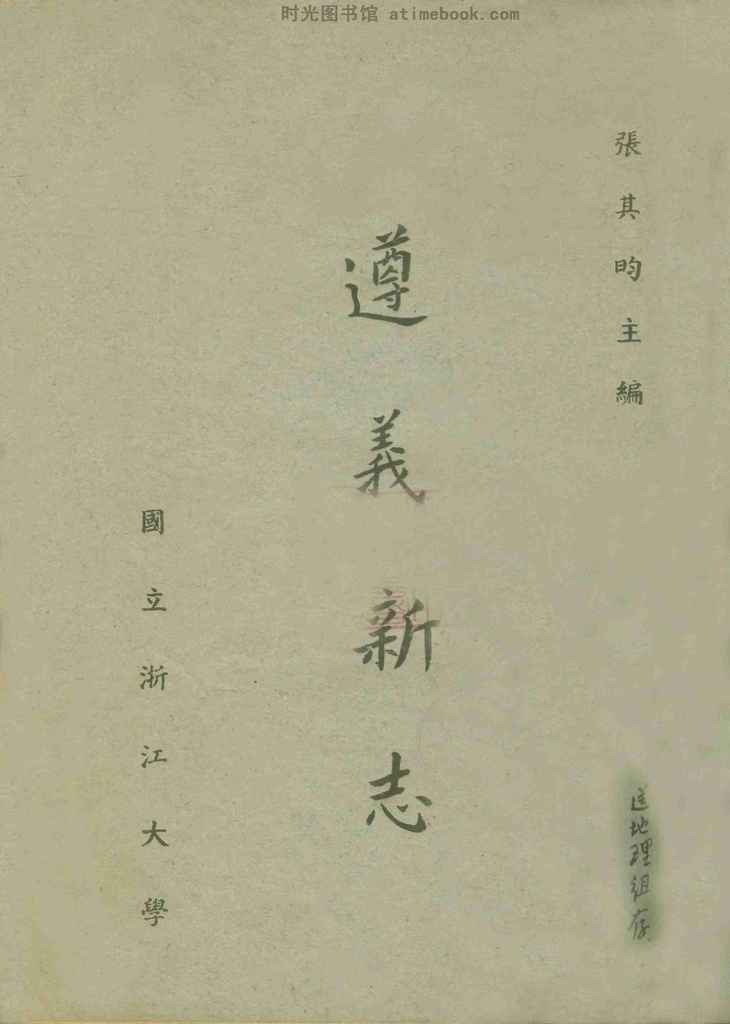 时光图书馆 atimebook.com
張其昀主編
遵義新志
國立浙江大學
地理組存